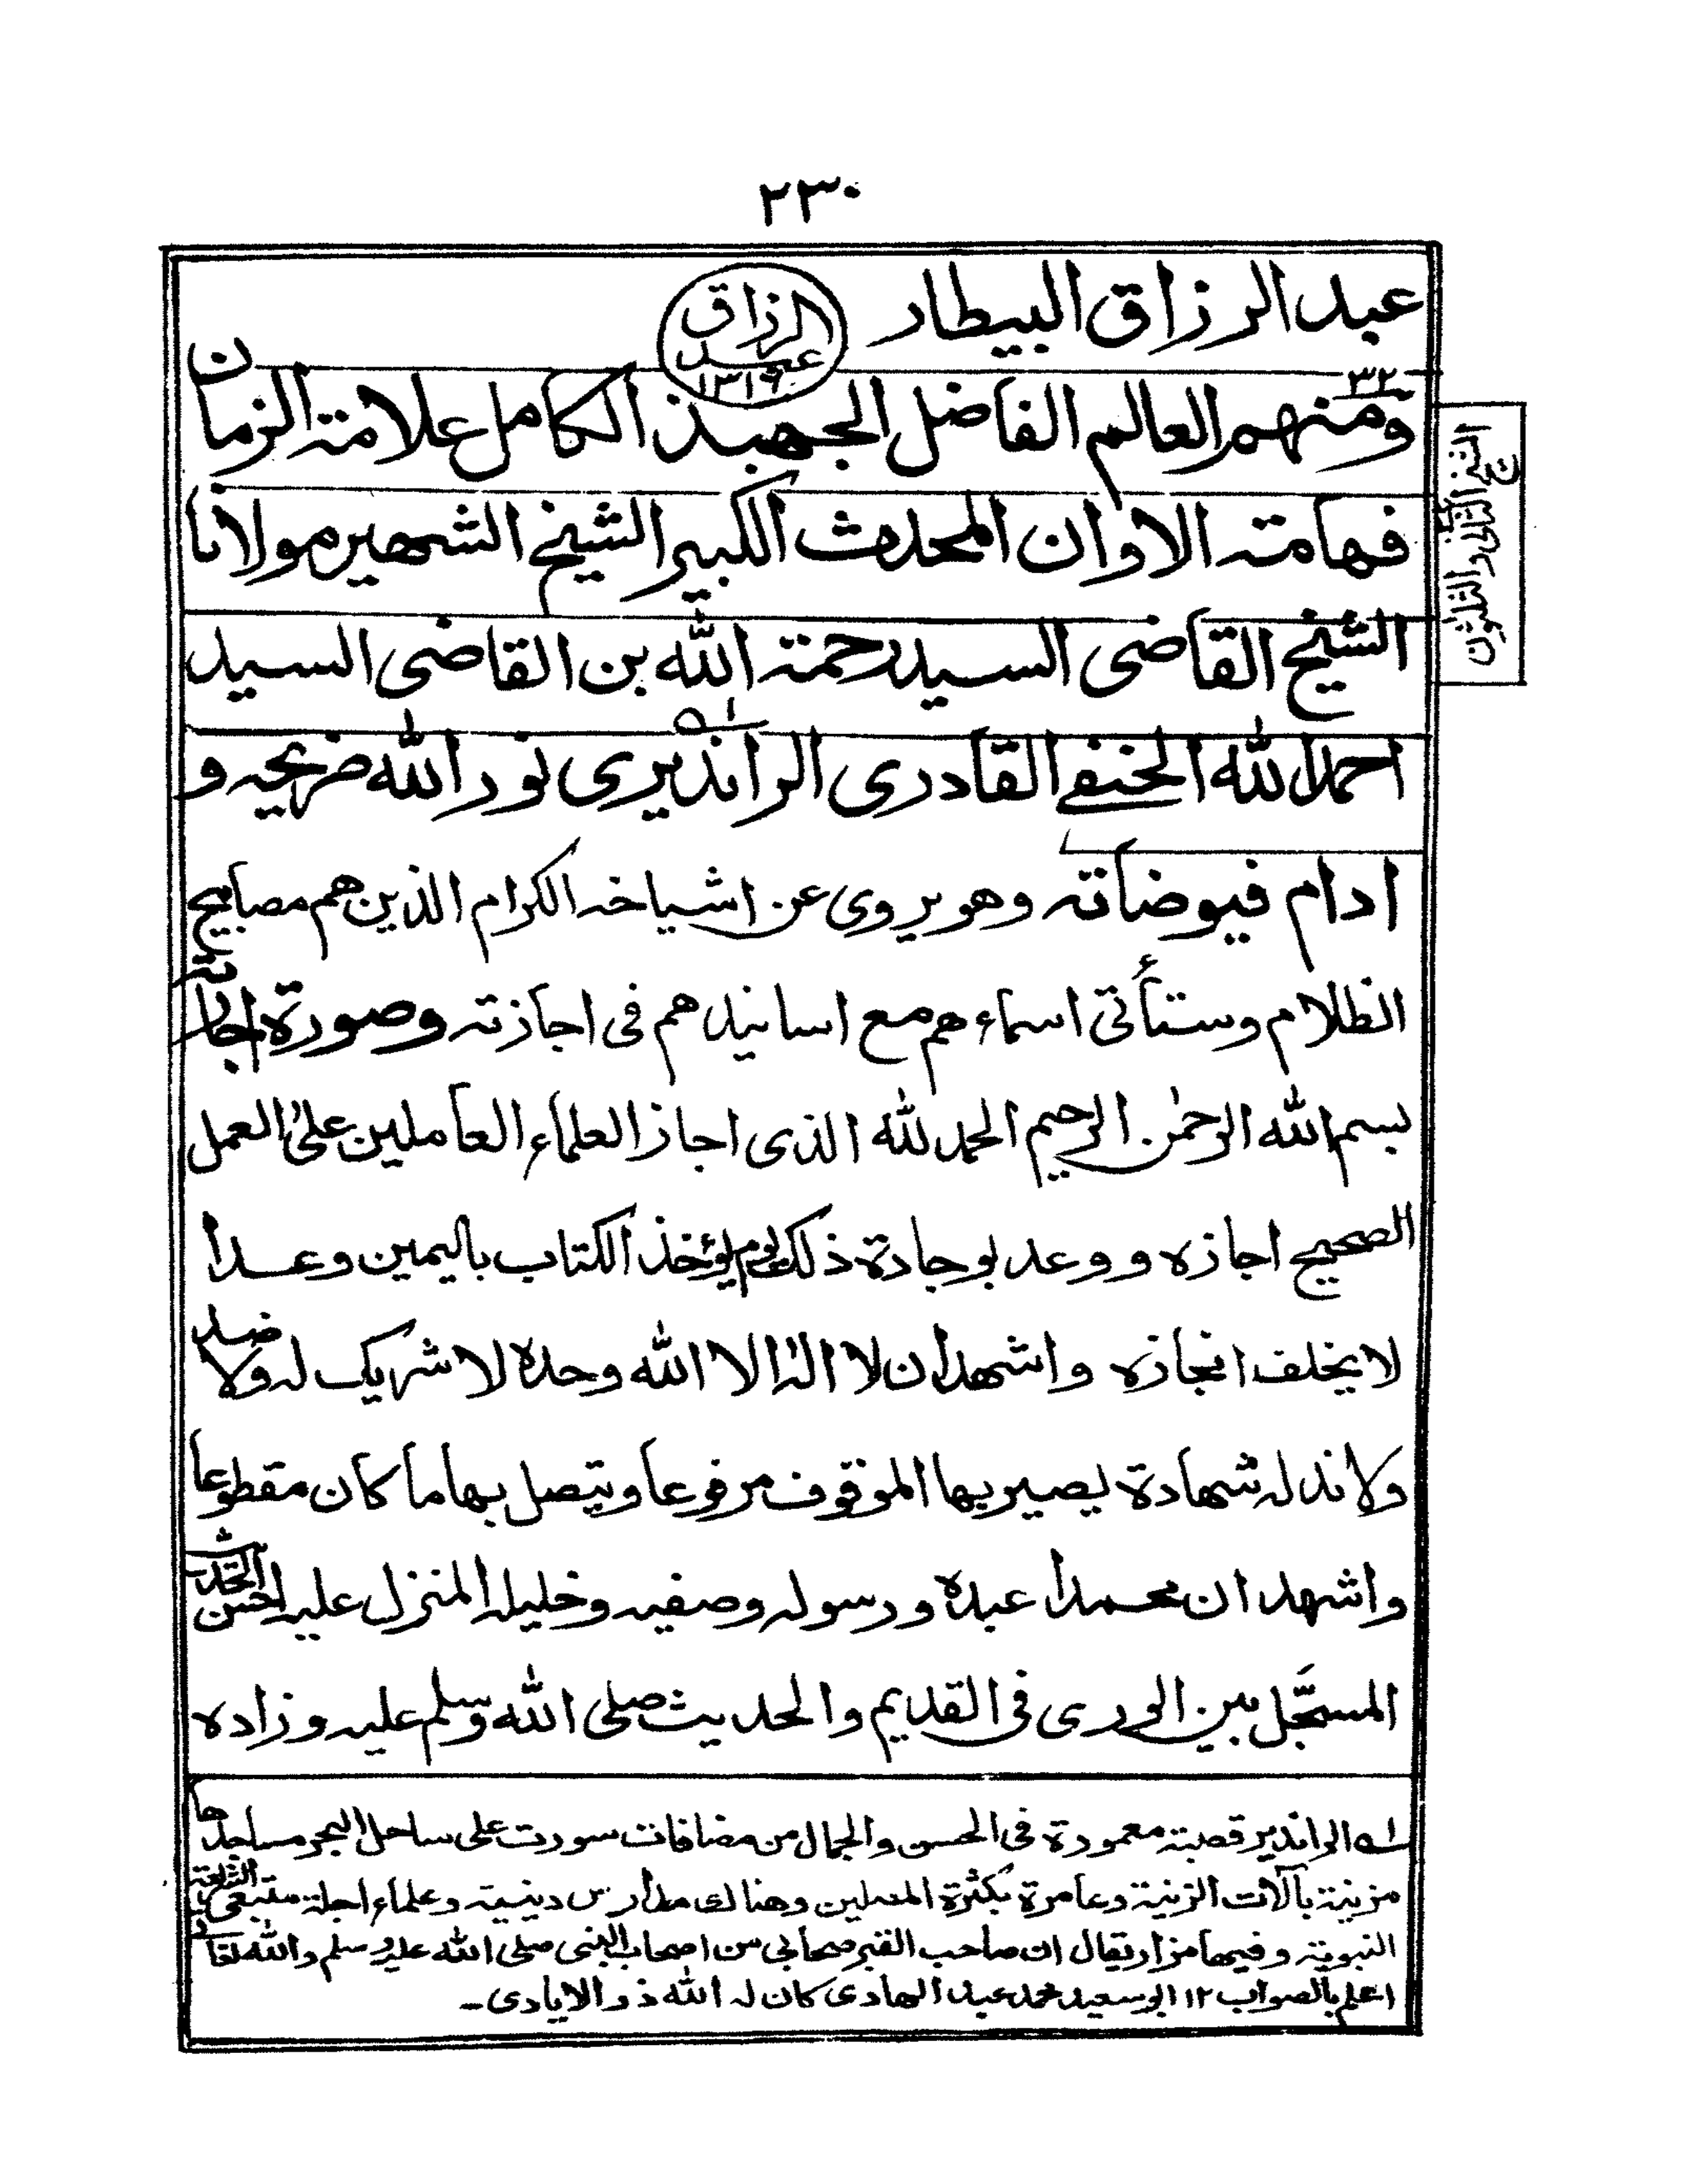 ٢٣٠
عبد الرزاق البيطار
الرزاق
عبد
١٣١٦
٣٢
ومنهم العالم الفاضل الجهبذ الكامل علامة الزمان
فهامة الاوان المحدث الكبير الشيخ الشهير مولانا
الشيخ القاضى السيد رحمة الله بن القاضى السيد
احمد الله الحنفے القادرى الراندیرى نور الله ضريحه و
ادام فيوضاته وهو يروى عن اشياخه الكرام الذين هم مصابيح
الظلام وستأتى اسماءهم مع اسانيدهم فى اجازته وصورة اجازته
بسم الله الرحمٰن الرحيم الحمد لله الذى اجاز العلماء العاملين علىٰ العمل
الصحيح اجازه و وعد بوجادة ذلك يوم يؤخذ الكتاب باليمين وعدا
لا يخلف انجازه واشهد ان لا اله الا الله وحده لا شريك له ولا ضد
ولا ند له شهادة يصير بها الموقوف مرفوعا ويتصل بها ما كان مقطوعا
واشهد ان محمدا عبده ورسوله وصفيه وخليله المنزل عليه احسن التحديث
المسجَّل بين الورى فى القديم والحديث صلى الله وسلم عليه وزاده
الشيخ الثانى والثلثون
١ه الراندير قصبة معمورة فى الحسن والجمال من مضافات سورت على ساحل البحر مساجدها
مزينة بآلات الزينة وعامرة بكثرة المصلين وهنالك مدارس دينية وعلماء اجلة متبعى الشريعة
النبوية وفيها مزار يقال ان صاحب القبر صحابى من اصحاب النبى صلى الله عليه وسلم والله تعالىٰ
اعلم بالصواب ١٢ ابو سعيد محمد عبد الهادى كان له الله ذو الايادى ـ